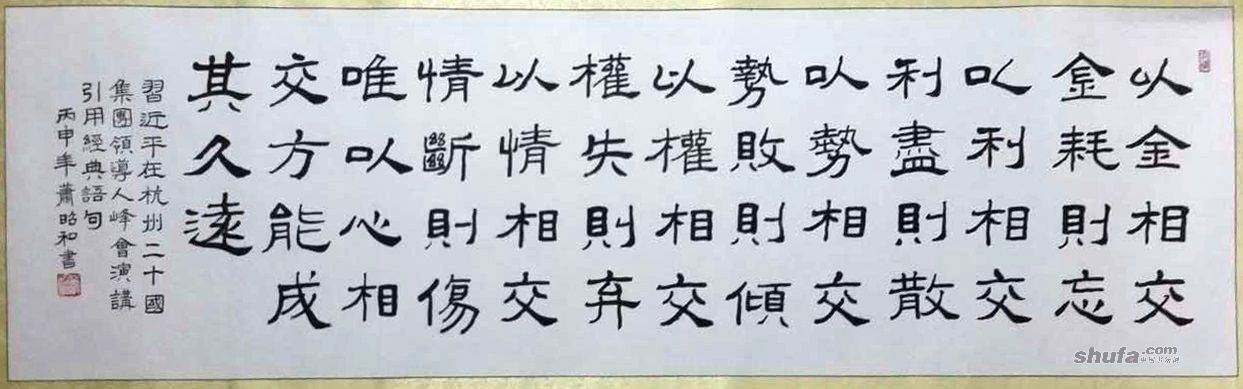 以金相交
金耗則忘
以利相交
利盡則散
以勢相交
勢敗則傾
以權相交
權失則弃
以情相交
情斷則傷
唯以心相
交方能成
其久遠
習近平在杭州二十國
集團領導人峰會演講
引用經典語句
丙申年蕭昭和書
shufa.com